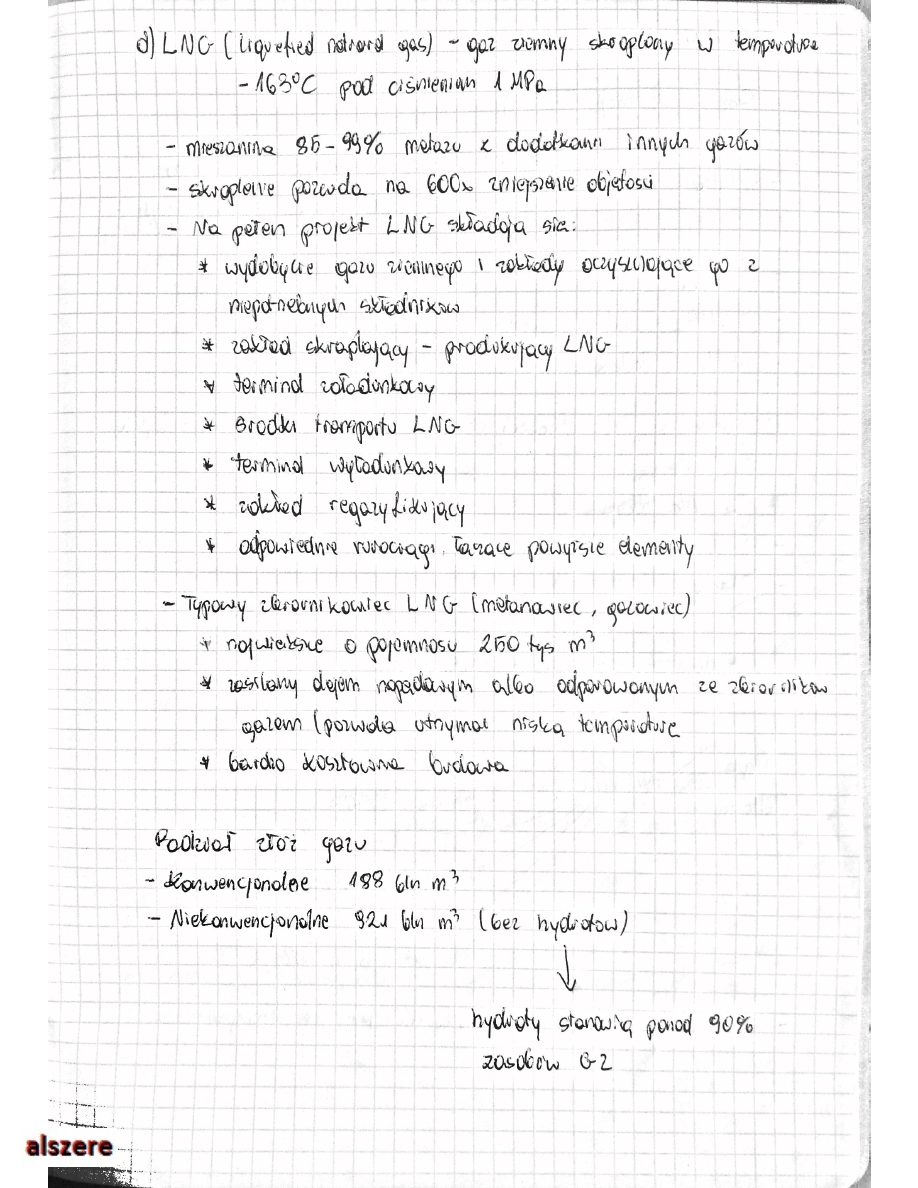 d) LNG (Liquefied natural gas) - gaz ziemny skroplony w temperaturze
-163°C pod ciśnieniem 1 MPa
- mieszanina 85-99% metanu z dodatkami innych gazów
- skroplenie pozwala na 600x zniejszenie objętości
- Na pełen projekt LNG składają się:
* wydobycie gazu ziemnego i zakłady oczyszczające go z
niepotrzebnych składników
* zakład skraplający - produkujący LNG
* terminal załadunkowy
* środki transportu LNG
* terminal wyładunkowy
* zakład regazyfikujący
* odpowiednie rurociągi łączące powyższe elementy
- Typowy zbiornikowiec LNG (metanowiec, gazowiec)
* największe o pojemności 250 tys m³
* zasilany olejem napędowym albo odparowanym ze zbiorników
gazem (pozwala utrzymać niską temperaturę
* bardzo kosztowna budowa
Podział złóż gazu
- Konwencjonalne 188 bln m³
- Niekonwencjonalne 921 bln m³ (bez hydratów)
↓
hydraty stanowią ponad 90%
zasobów GZ
alszere